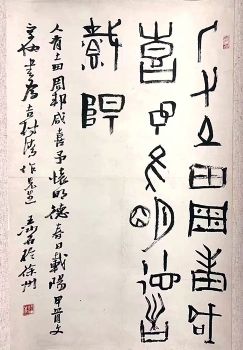 人有土田周邦咸
喜予懷明德春日
載陽
人有土田周邦咸喜予懷明德春日載陽甲骨文
書為吉 於徐州